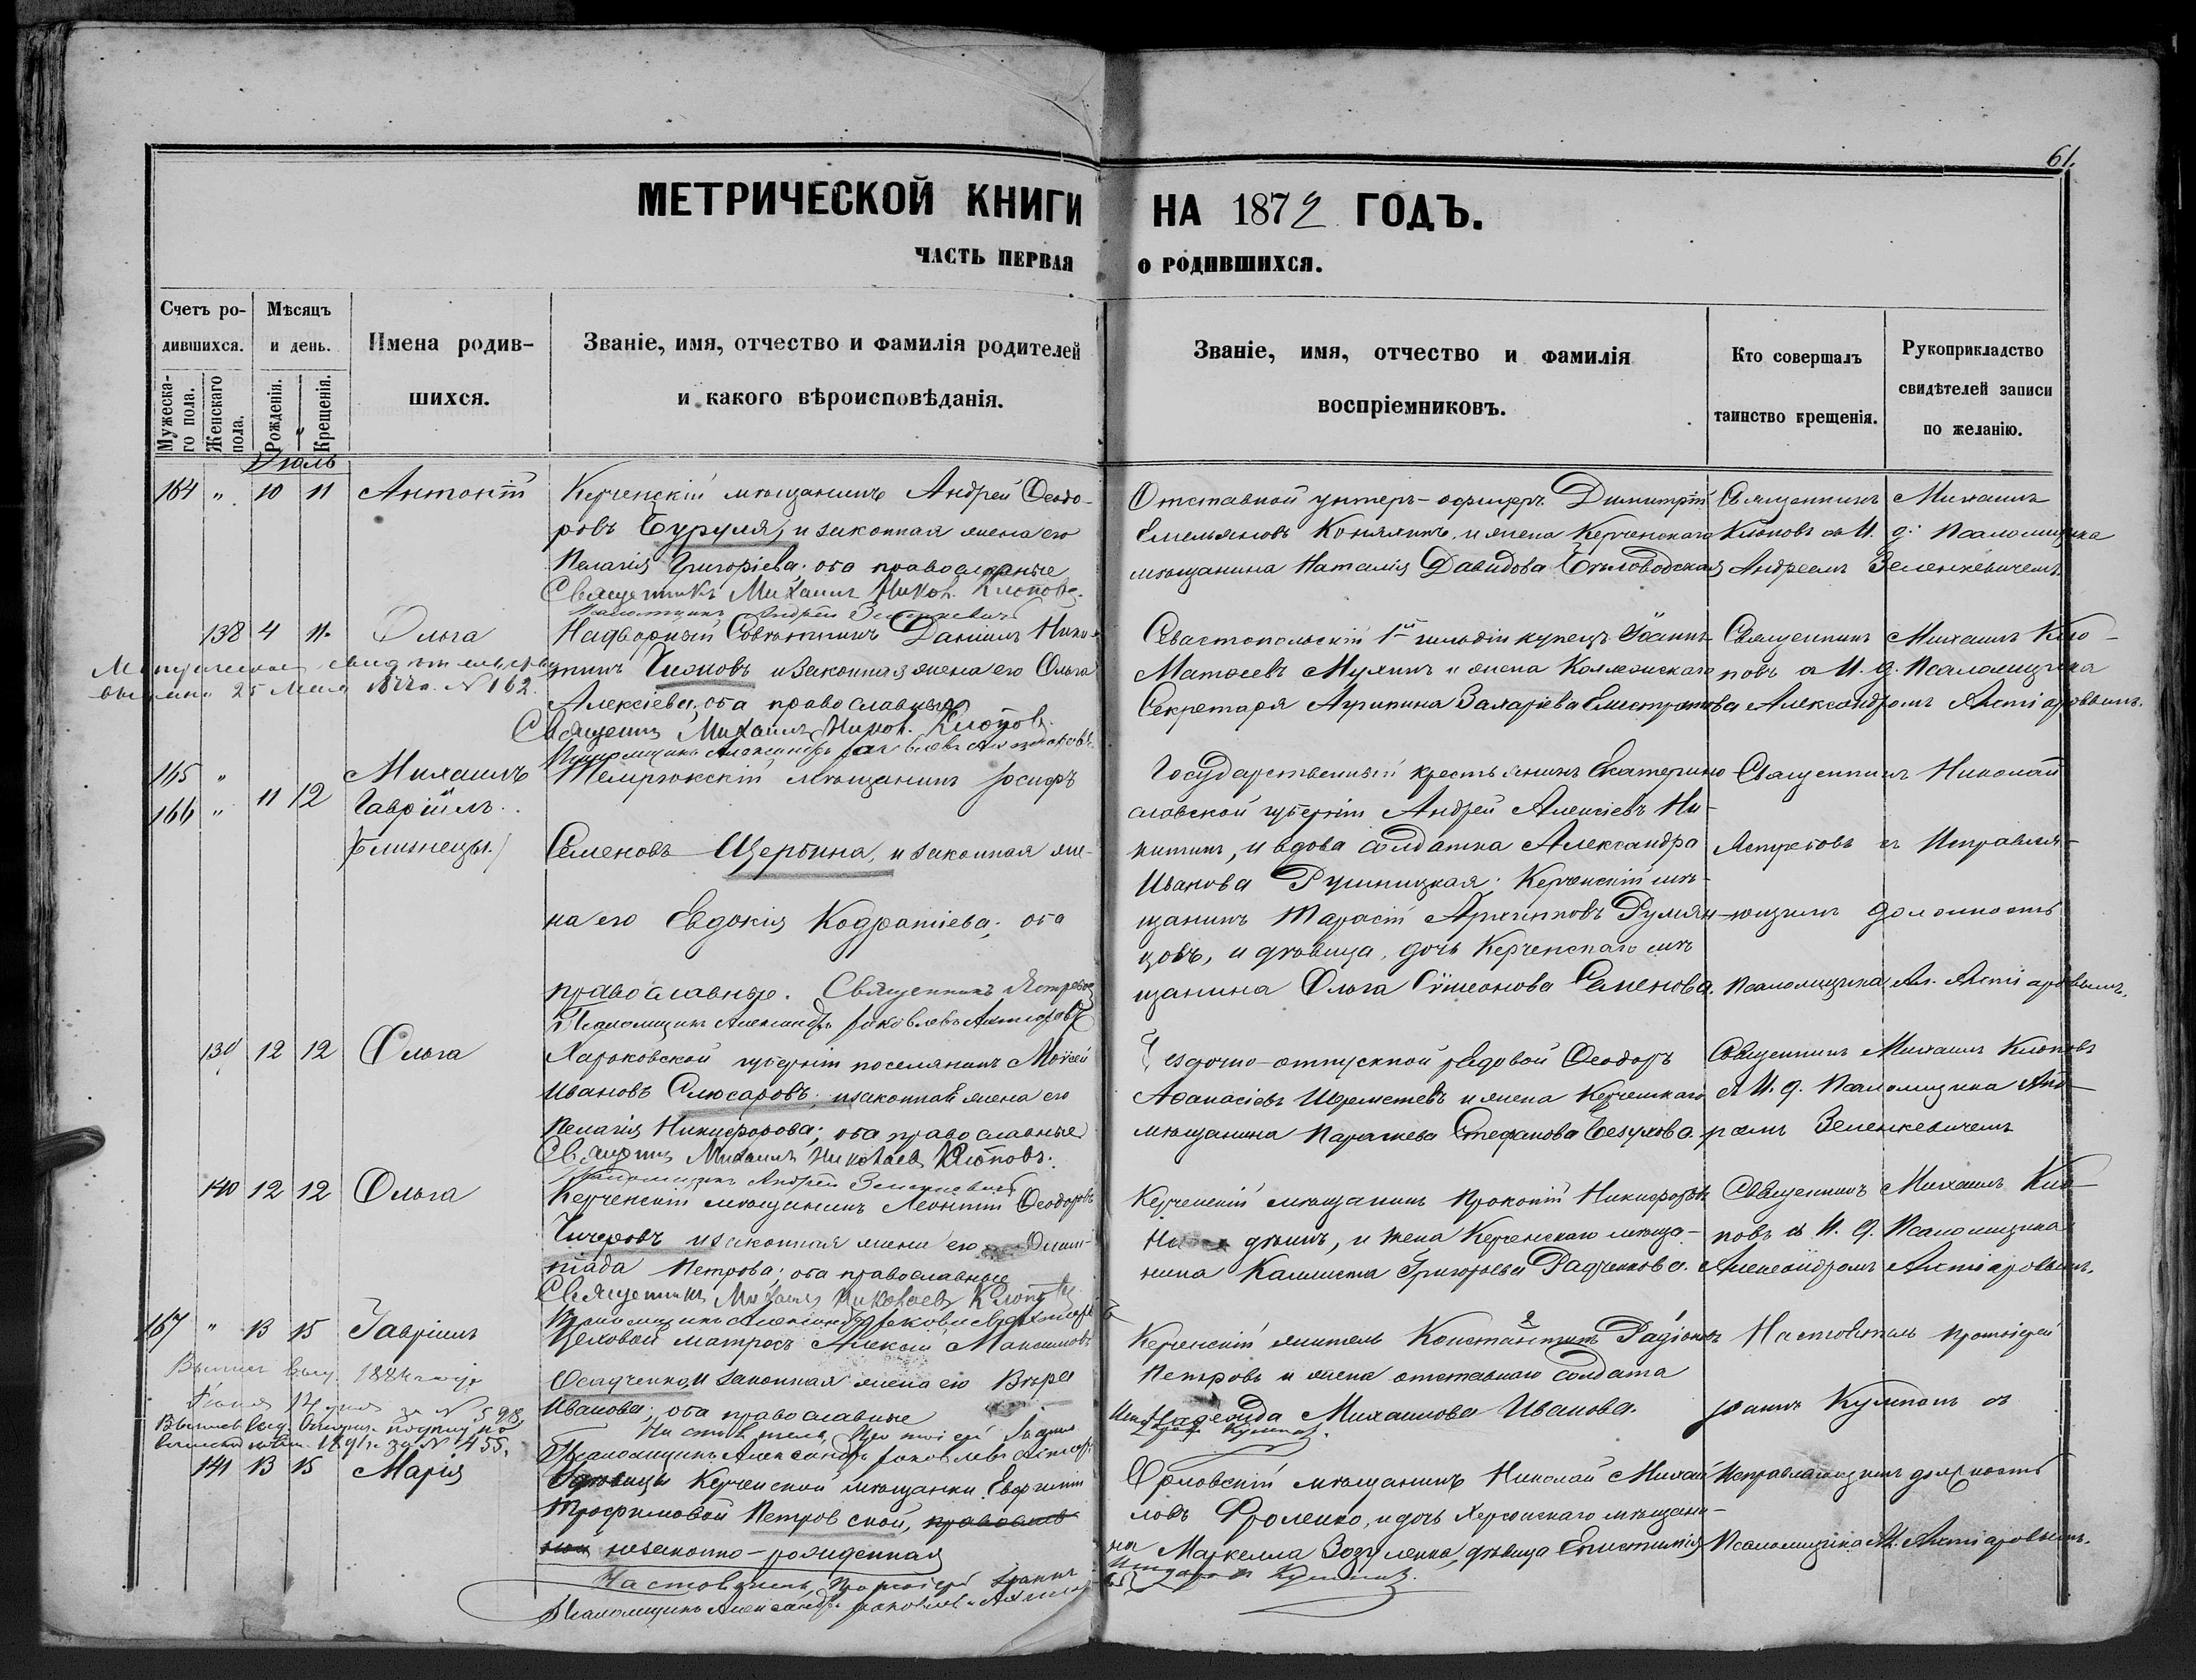 61.
МЕТРИЧЕСКОЙ КНИГИ НА 1872 ГОДЪ.
ЧАСТЬ ПЕРВАЯ О РОДИВШИХСЯ.
Счетъ ро-
дившихся.
Мужеска-
го пола.
Женскаго
пола.
Мѣсяцъ
и день.
Рожденія.
Крещенія.
Имена родив-
шихся.
Званіе, имя, отчество и фамилія родителей
и какого вѣроисповѣданія.
Званіе, имя, отчество и фамилія
воспріемниковъ.
Кто совершалъ
таинство крещенія.
Рукоприкладство
свидѣтелей записи
по желанію.
Іюль
164 " 10 11 Антоній
Керченскій мѣщанинъ Андрей Ѳеодо-
ровъ Буруля, и законная жена его
Пелагія Григоріева; оба православные
Священникъ Михаилъ Никол. Клоповъ.
Псаломщикъ Андрей Зеленкевичъ
Отставной унтеръ-офицеръ Димитрій
Емельяновъ Конялинъ, и жена Керченскаго
мѣщанина Наталія Давидова Бѣловодская
Священникъ Михаилъ
Клоповъ съ И. д. Псаломщика
Андреемъ Зеленкевичемъ
138 4 11 Ольга
Метрическое свидѣтельство
выдано 25 Мая 1877 г. № 162.
Надворный Совѣтникъ Даніилъ Ники-
тинъ Чижовъ и законная жена его Ольга
Алексіева, оба православные
Священ. Михаилъ Никол. Клоповъ.
Псаломщикъ Александръ Яковлевъ Ахтіаровъ
Севастопольскій 1й гильдіи купецъ Іоаннъ
Матѳеевъ Мухинъ и жена Коллежскаго
Секретаря Агрипина Захаріева Елистратова
Священникъ Михаилъ Кло-
повъ съ И. д. Псаломщика
Александромъ Ахтіаровымъ.
165 " Михаилъ
166 " 11 12 Гавріилъ
(близнецы)
Темрюкскій мѣщанинъ Іосифъ
Семеновъ Щербина, и законная же-
на его Евдокія Кодратіева; оба
православные. Священникъ Ястребовъ
Псаломщикъ Александръ Яковлевъ Ахтіаровъ
Государственный крестьянинъ Екатерино
славской губерніи Андрей Алексіевъ Ни-
китинъ, и вдова солдатка Александра
Иванова Рушницкая; Керченскій мѣ-
щанинъ Тарасій Архиповъ Румян-
цовъ, и дѣвица, дочь Керченскаго мѣ
щанина Ольга Сѵмеонова Семенова.
Священникъ Николай
Ястребовъ съ Исправля-
ющимъ должность
Псаломщика Ал. Ахтіаровымъ.
139 12 12 Ольга
Харьковской губерніи поселянинъ Моѵсей
Ивановъ Слюсаровъ, и законная жена его
Пелагія Никифорова; оба православные
Священникъ Михаилъ Николаевъ Клоповъ.
Псаломщикъ Андрей Зеленкевичъ
Безсрочно-отпускной рядовой Ѳеодоръ
Аѳанасіевъ Шереметевъ и жена Керченскаго
мѣщанина Параскева Стефанова Безухова.
Священникъ Михаилъ Клоповъ
съ И. д. Псаломщика Анд-
реемъ Зеленкевичемъ
140 12 12 Ольга
Керченскій мѣщанинъ Леонтій Ѳеодоровъ
Чичеровъ и законная жена его Олим-
піада Петрова; оба православные
Священникъ Михаилъ Николаевъ Клоповъ
Псаломщикъ Александръ Яковлевъ Ахтіаровъ
Керченскій мѣщанинъ Прокопій Никифоровъ
и жена Керченскаго мѣща-
нина Калиста Григорьева Радченкова.
Священникъ Михаилъ Кло-
повъ съ И. д. Псаломщика
Александромъ Ахтіаровымъ.
167 " 13 15 Гавріилъ
1884 года
1891 г. за № 455.
Цеховой матросъ Алексій Максимовъ
Осадченко, и законная жена его Вѣра
Иванова; оба православные
Настоятель, Протоіерей Іоаннъ
Псаломщикъ Александръ Яковлевъ Ахтіаровъ
Керченскій житель Константинъ Радіоновъ
Петровъ и жена отставнаго солдата
Михаилова Иванова.
Настоятель Протоіерей
Іоаннъ съ
141 13 15 Марія
Вдовицы Керченской мѣщанки Евфиміи
Трофимовой Петровской,
незаконно-рожденная
Настоятель, Протоіерей Іоаннъ
Псаломщикъ Александръ Яковлевъ Ахтіаровъ
Орловскій мѣщанинъ Николай Михаи
ловъ Фроленко, и дочь Херсонскаго мѣщани-
на Маркелла Зозуленка, дѣвица Епистимія
Исправляющимъ должность
Псаломщика Ал. Ахтіаровымъ.